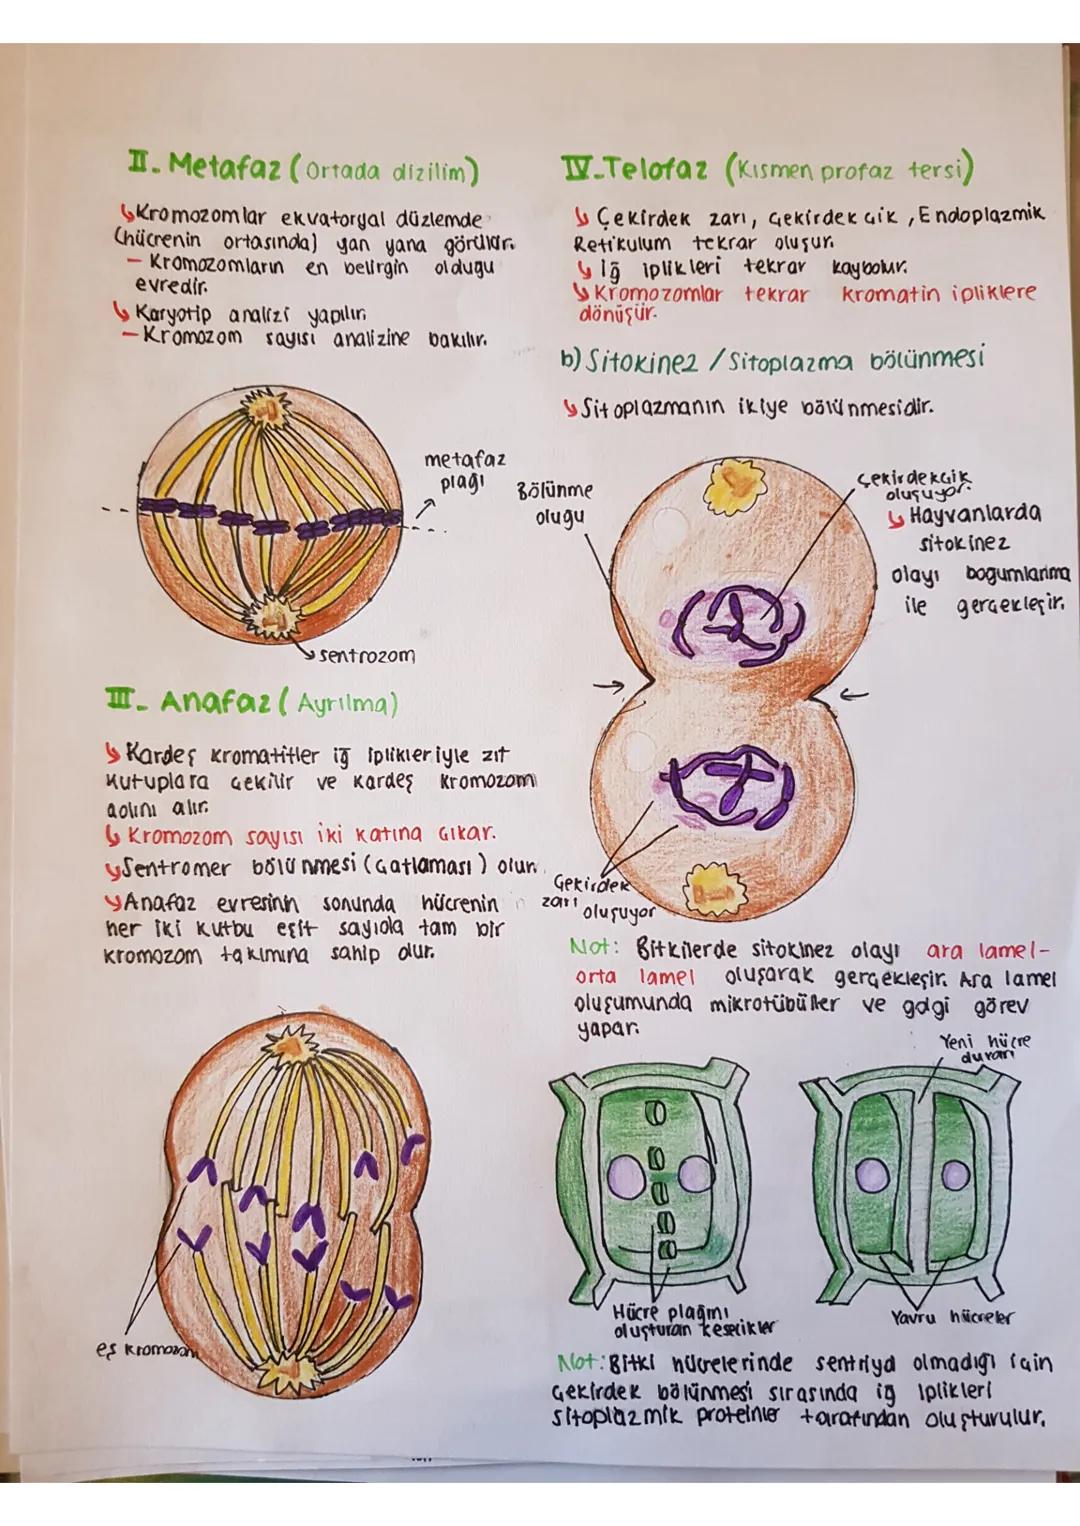 II- Metafaz (Ortada dizilim)
↳Kromozomlar ekvatoryal düzlemde
(hücrenin ortasında) yan yana görülür.
- Kromozomların en belirgin olduğu
evredir.
↳ Karyotip analizi yapılır.
- Kromozom sayısı analizine bakılır.
metafaz
plağı
sentrozom
III- Anafaz (Ayrılma)
↳ Kardeş kromatitler iğ iplikleriyle zıt
kutuplara çekilir ve kardeş kromozom
adını alır.
↳ Kromozom sayısı iki katına çıkar.
↳Sentromer bölünmesi (çatlaması) olur.
↳Anafaz evresinin sonunda hücrenin
her iki kutbu eşit sayıda tam bir
kromozom takımına sahip olur.
eş kromozom
IV-Telofaz (Kısmen profaz tersi)
↳ Çekirdek zarı, çekirdekçik, Endoplazmik
Retikulum tekrar oluşur.
↳ iğ iplikleri tekrar kaybolur.
↳ Kromozomlar tekrar kromatin ipliklere
dönüşür.
b) Sitokinez / Sitoplazma bölünmesi
↳ Sitoplazmanın ikiye bölünmesidir.
Bölünme
oluğu
çekirdekçik
oluşuyor.
↳ Hayvanlarda
sitokinez
olayı boğumlanma
ile gerçekleşir.
Çekirdek
zarı
oluşuyor
Not: Bitkilerde sitokinez olayı ara lamel-
orta lamel oluşarak gerçekleşir. Ara lamel
oluşumunda mikrotübüller ve golgi görev
yapar.
Yeni hücre
duvarı
Hücre plağını
oluşturan kesecikler
Yavru hücreler
Not: Bitki hücrelerinde sentriyol olmadığı için
çekirdek bölünmesi sırasında iğ iplikleri
sitoplazmik proteinler tarafından oluşturulur.